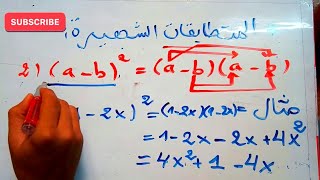 SUBSCRIBE
المتطابقات الشهيرة:
2) (a-b)² = (a-b)(a-b)
- 2x)² = (1-2x)(1-2x) = مثال
= 1-2x-2x+4x²
= 4x²+1-4x